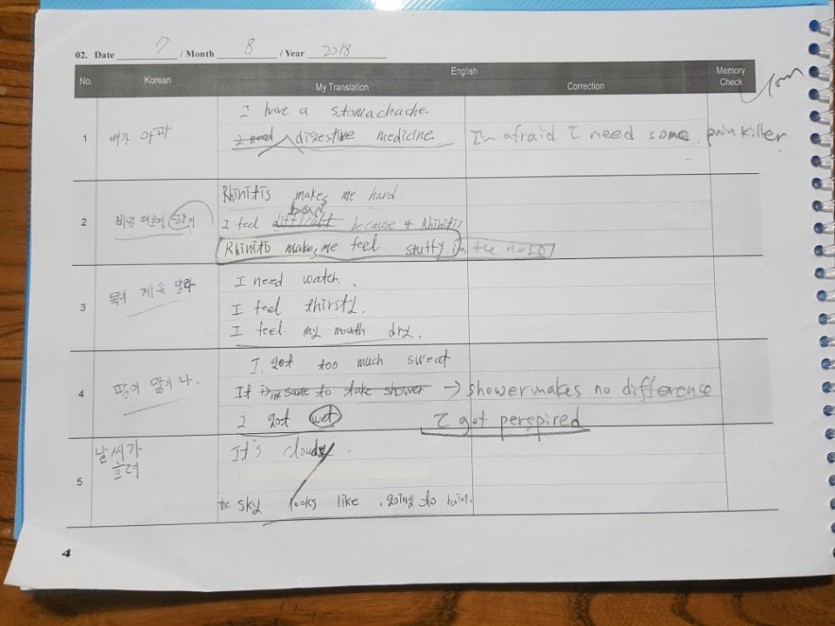 02. Date 7 / Month 8 / Year 2018
No. Korean English Memory Check
My Translation Correction
1 배가 아파
I have a stomachache.
I need digestive medicine. I'm afraid I need some painkiller.
2 비염 때문에
Rhinitis makes me hard.
bad
I feel difficult because of Rhinitis
Rhinitis makes me feel stuffy in the nose
3 목이 계속 말라
I need watch.
I feel thirsty.
I feel my mouth dry.
4 땀이 많이 나.
I got too much sweat
It same to take shower → shower makes no difference
I got wet I got perspired
5 날씨가 흐려
It's cloudy.
the sky looks like going to rain.
4